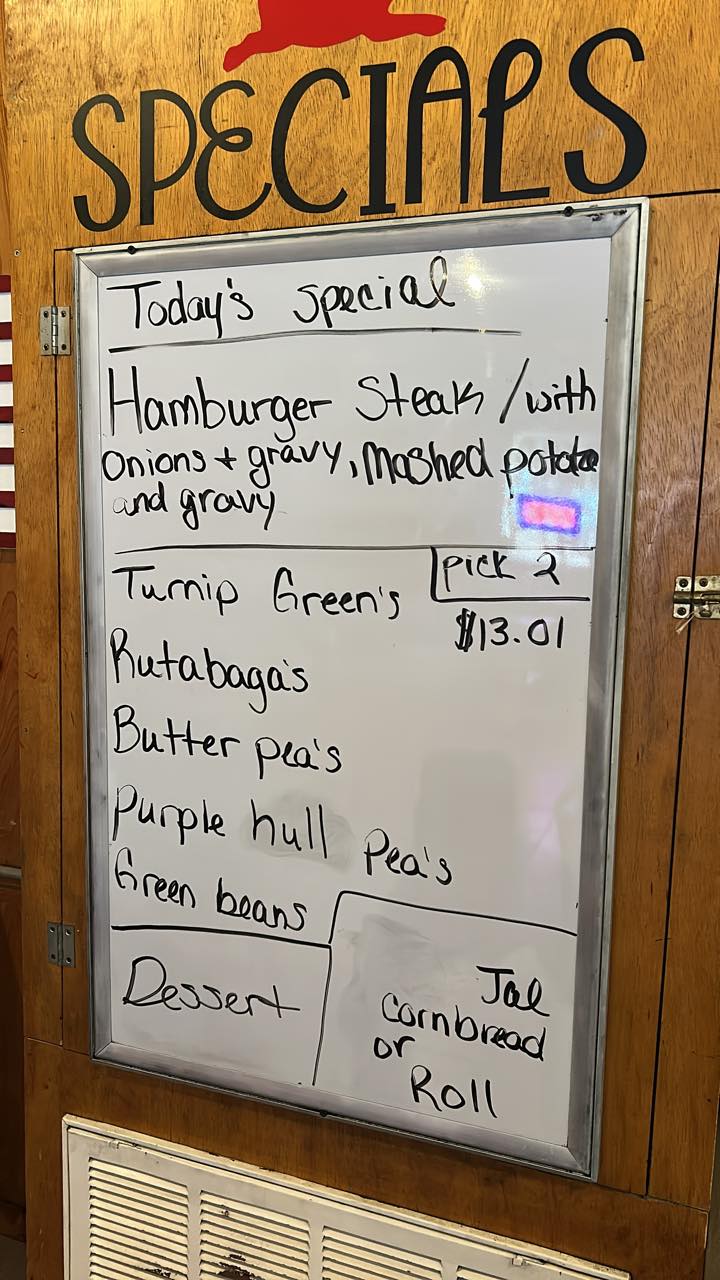 SPECIALS
Today's special
Hamburger Steak / with
onions + gravy, Mashed potatoe
and gravy
Turnip Green's
pick 2
$13.01
Rutabaga's
Butter pea's
Purple hull Pea's
Green beans
Dessert
Jal
cornbread
or
Roll